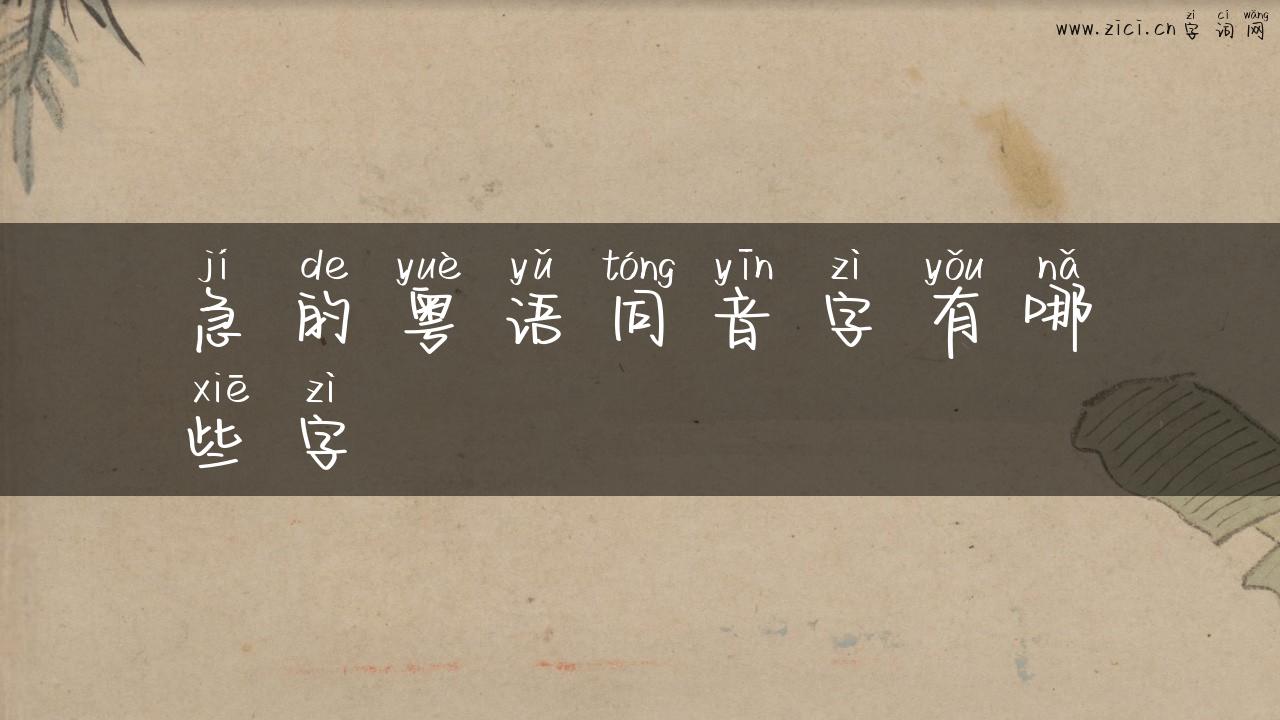 zì cí wǎng
www.zici.cn 字词网
jí de yuè yǔ tóng yīn zì yǒu nǎ
急的粤语同音字有哪
xiē zì
些字